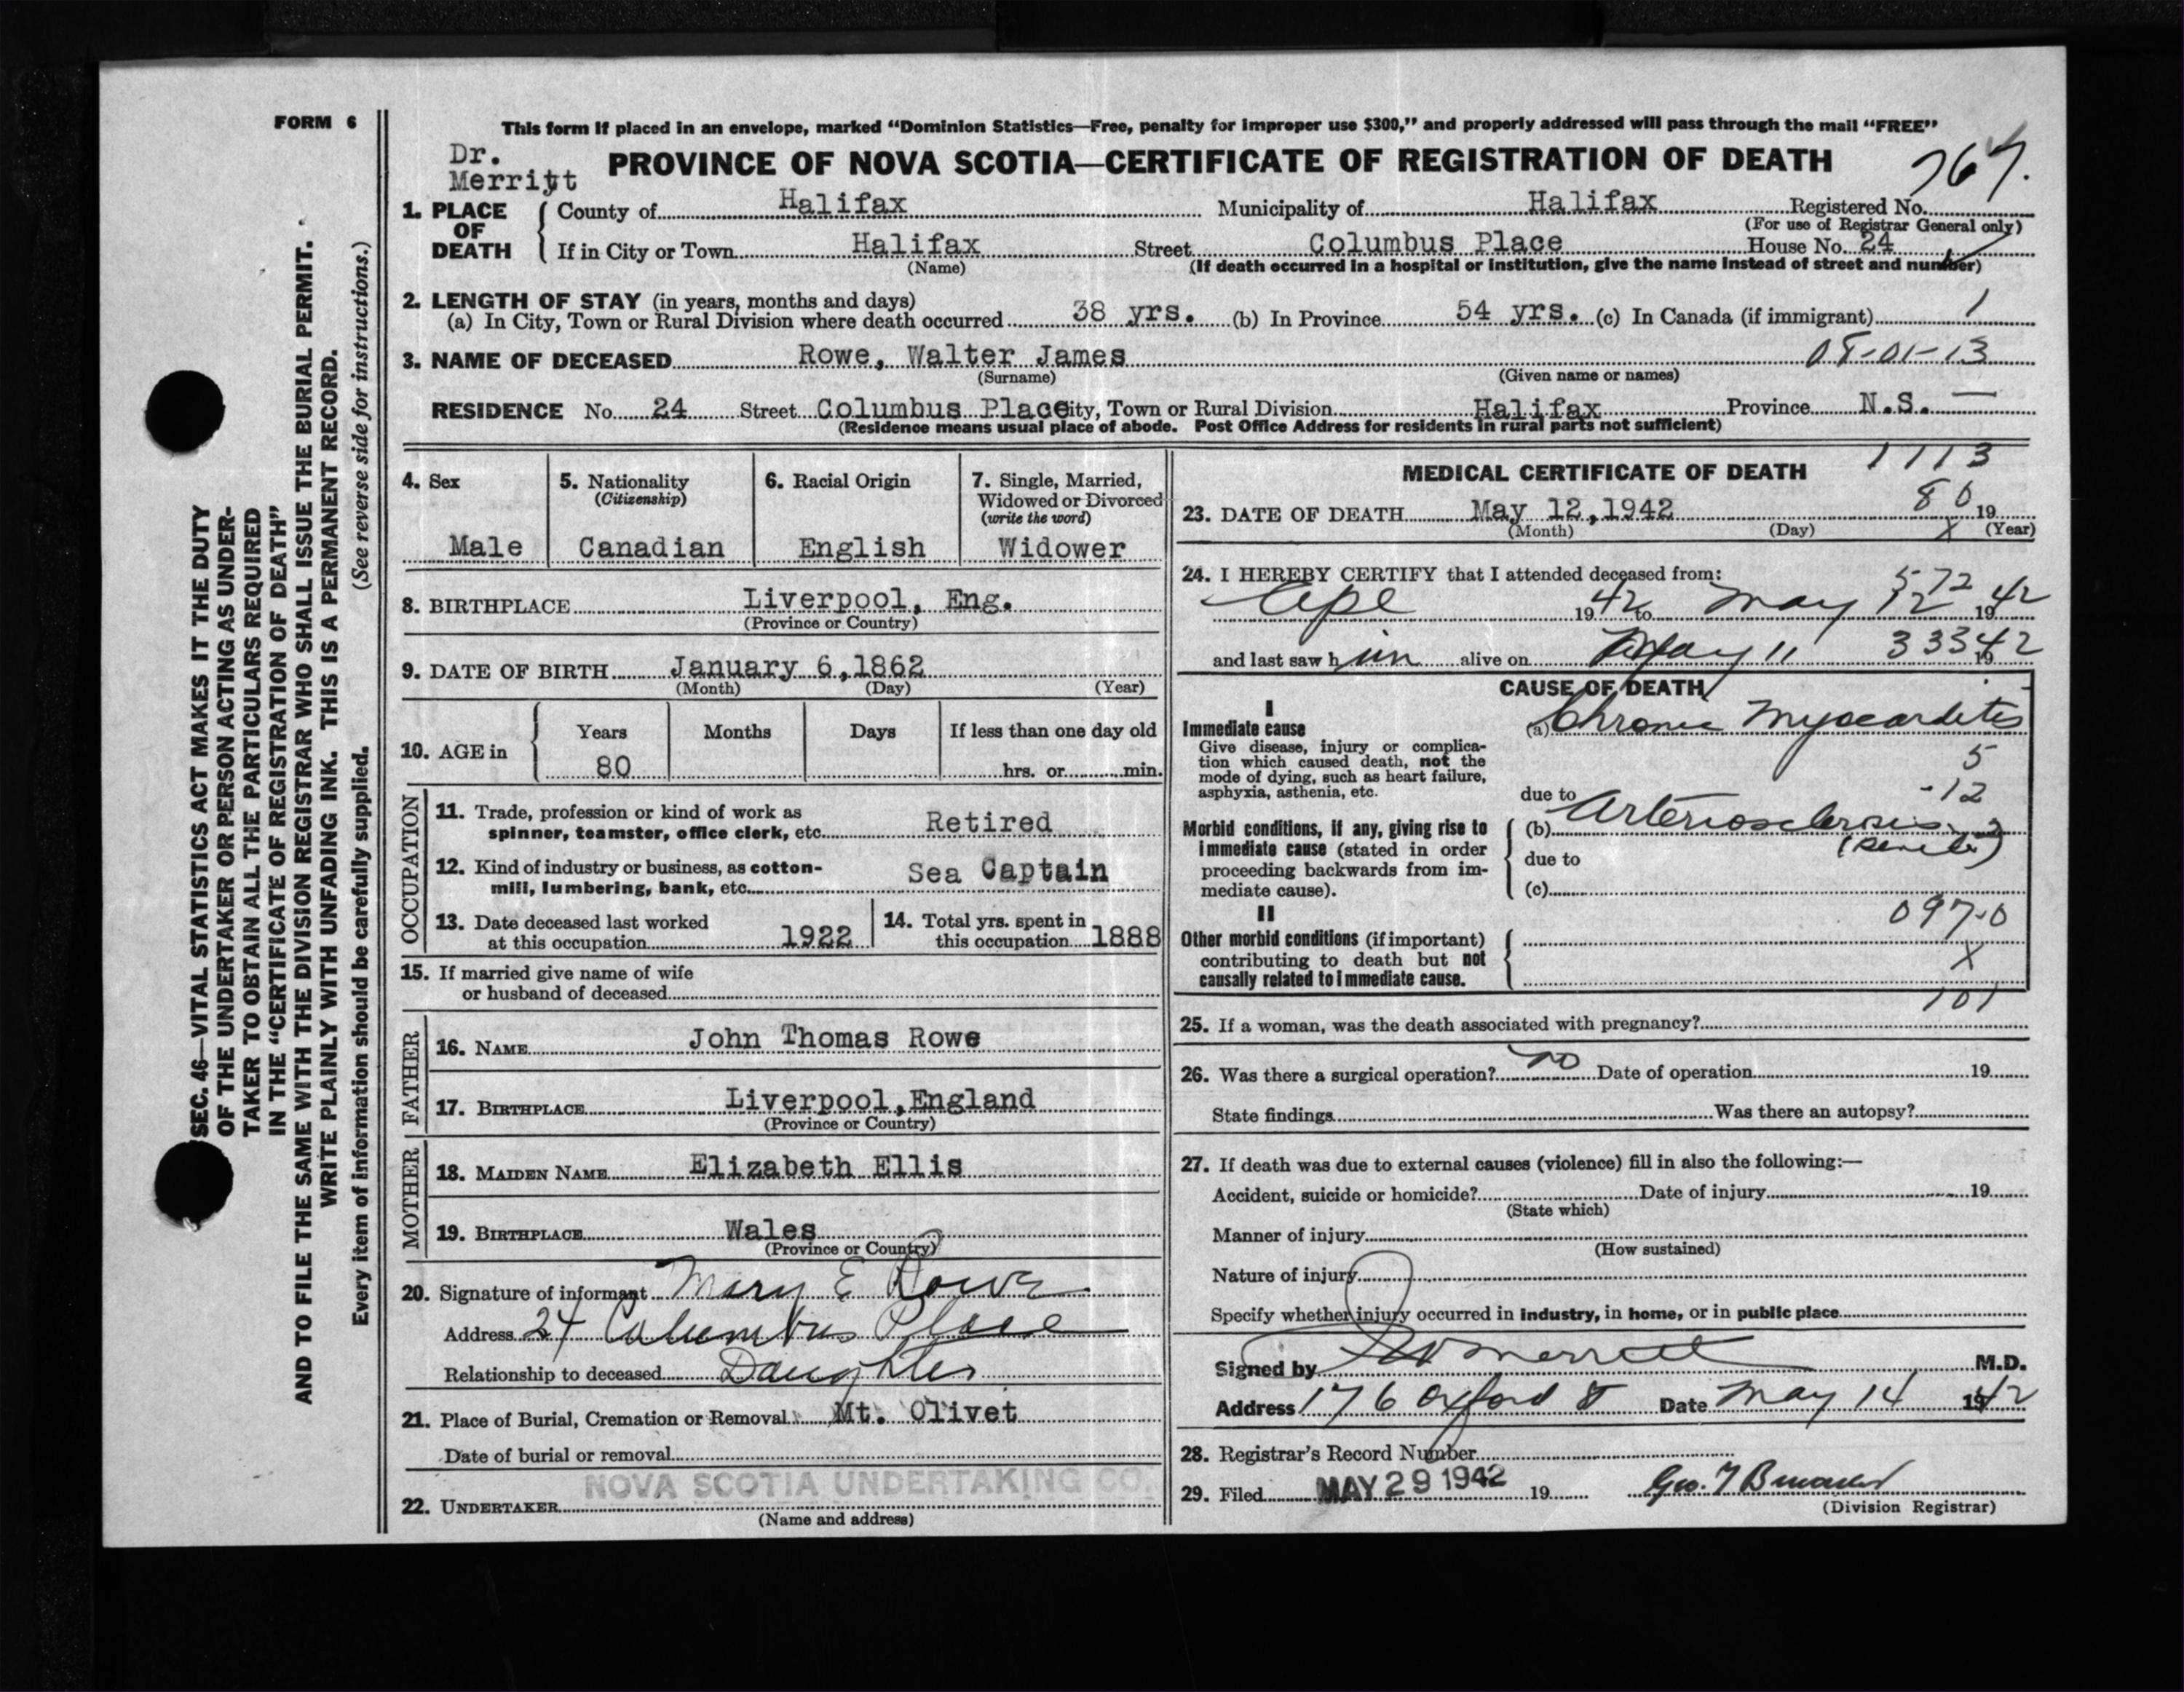 FORM 6
SEC. 46—VITAL STATISTICS ACT MAKES IT THE DUTY
OF THE UNDERTAKER OR PERSON ACTING AS UNDER-
TAKER TO OBTAIN ALL THE PARTICULARS REQUIRED
IN THE "CERTIFICATE OF REGISTRATION OF DEATH"
AND TO FILE THE SAME WITH THE DIVISION REGISTRAR WHO SHALL ISSUE THE BURIAL PERMIT.
WRITE PLAINLY WITH UNFADING INK. THIS IS A PERMANENT RECORD.
Every item of information should be carefully supplied. (See reverse side for instructions.)
This form if placed in an envelope, marked "Dominion Statistics—Free, penalty for improper use $300," and properly addressed will pass through the mail "FREE"
Dr.
Merritt
PROVINCE OF NOVA SCOTIA—CERTIFICATE OF REGISTRATION OF DEATH
1. PLACE OF DEATH
County of Halifax Municipality of Halifax Registered No.
(For use of Registrar General only)
If in City or Town Halifax Street Columbus Place House No. 24
(Name) (If death occurred in a hospital or institution, give the name instead of street and number)
2. LENGTH OF STAY (in years, months and days)
(a) In City, Town or Rural Division where death occurred 38 yrs. (b) In Province 54 yrs. (c) In Canada (if immigrant) 1
3. NAME OF DECEASED Rowe, Walter James
(Surname) (Given name or names)
RESIDENCE No. 24 Street Columbus Place City, Town or Rural Division Halifax Province N.S.
(Residence means usual place of abode. Post Office Address for residents in rural parts not sufficient)
4. Sex
Male
5. Nationality
(Citizenship)
Canadian
6. Racial Origin
English
7. Single, Married,
Widowed or Divorced
(write the word)
Widower
8. BIRTHPLACE Liverpool, Eng.
(Province or Country)
9. DATE OF BIRTH January 6, 1862
(Month) (Day) (Year)
10. AGE in
Years Months Days If less than one day old
80 hrs. or min.
OCCUPATION
11. Trade, profession or kind of work as
spinner, teamster, office clerk, etc. Retired
12. Kind of industry or business, as cotton-
mill, lumbering, bank, etc. Sea Captain
13. Date deceased last worked
at this occupation 1922
14. Total yrs. spent in
this occupation 1888
15. If married give name of wife
or husband of deceased
FATHER
16. NAME John Thomas Rowe
17. BIRTHPLACE Liverpool, England
(Province or Country)
MOTHER
18. MAIDEN NAME Elizabeth Ellis
19. BIRTHPLACE Wales
(Province or Country)
20. Signature of informant Mary E Rowe
Address 24 Columbus Place
Relationship to deceased Daughter
21. Place of Burial, Cremation or Removal Mt. Olivet
Date of burial or removal
NOVA SCOTIA UNDERTAKING CO.
22. UNDERTAKER
(Name and address)
1113
MEDICAL CERTIFICATE OF DEATH
80
23. DATE OF DEATH May 12, 1942 19
(Month) (Day) (Year)
24. I HEREBY CERTIFY that I attended deceased from:
1942 to May 12 1942
and last saw him alive on May 11 1942
CAUSE OF DEATH
I
Immediate cause
Give disease, injury or complica-
tion which caused death, not the
mode of dying, such as heart failure,
asphyxia, asthenia, etc.
(a) Chronic Myocarditis
5
due to
12
Morbid conditions, if any, giving rise to
immediate cause (stated in order
proceeding backwards from im-
mediate cause).
(b) Arteriosclerosis
due to
(c)
II
097.0
Other morbid conditions (if important)
contributing to death but not
causally related to immediate cause.
X
101
25. If a woman, was the death associated with pregnancy?
26. Was there a surgical operation? no Date of operation 19
State findings Was there an autopsy?
27. If death was due to external causes (violence) fill in also the following:—
Accident, suicide or homicide? Date of injury 19
(State which)
Manner of injury
(How sustained)
Nature of injury
Specify whether injury occurred in industry, in home, or in public place
Signed by Merritt M.D.
Address 176 Oxford St Date May 14 1942
28. Registrar's Record Number
29. Filed MAY 29 1942 19
(Division Registrar)